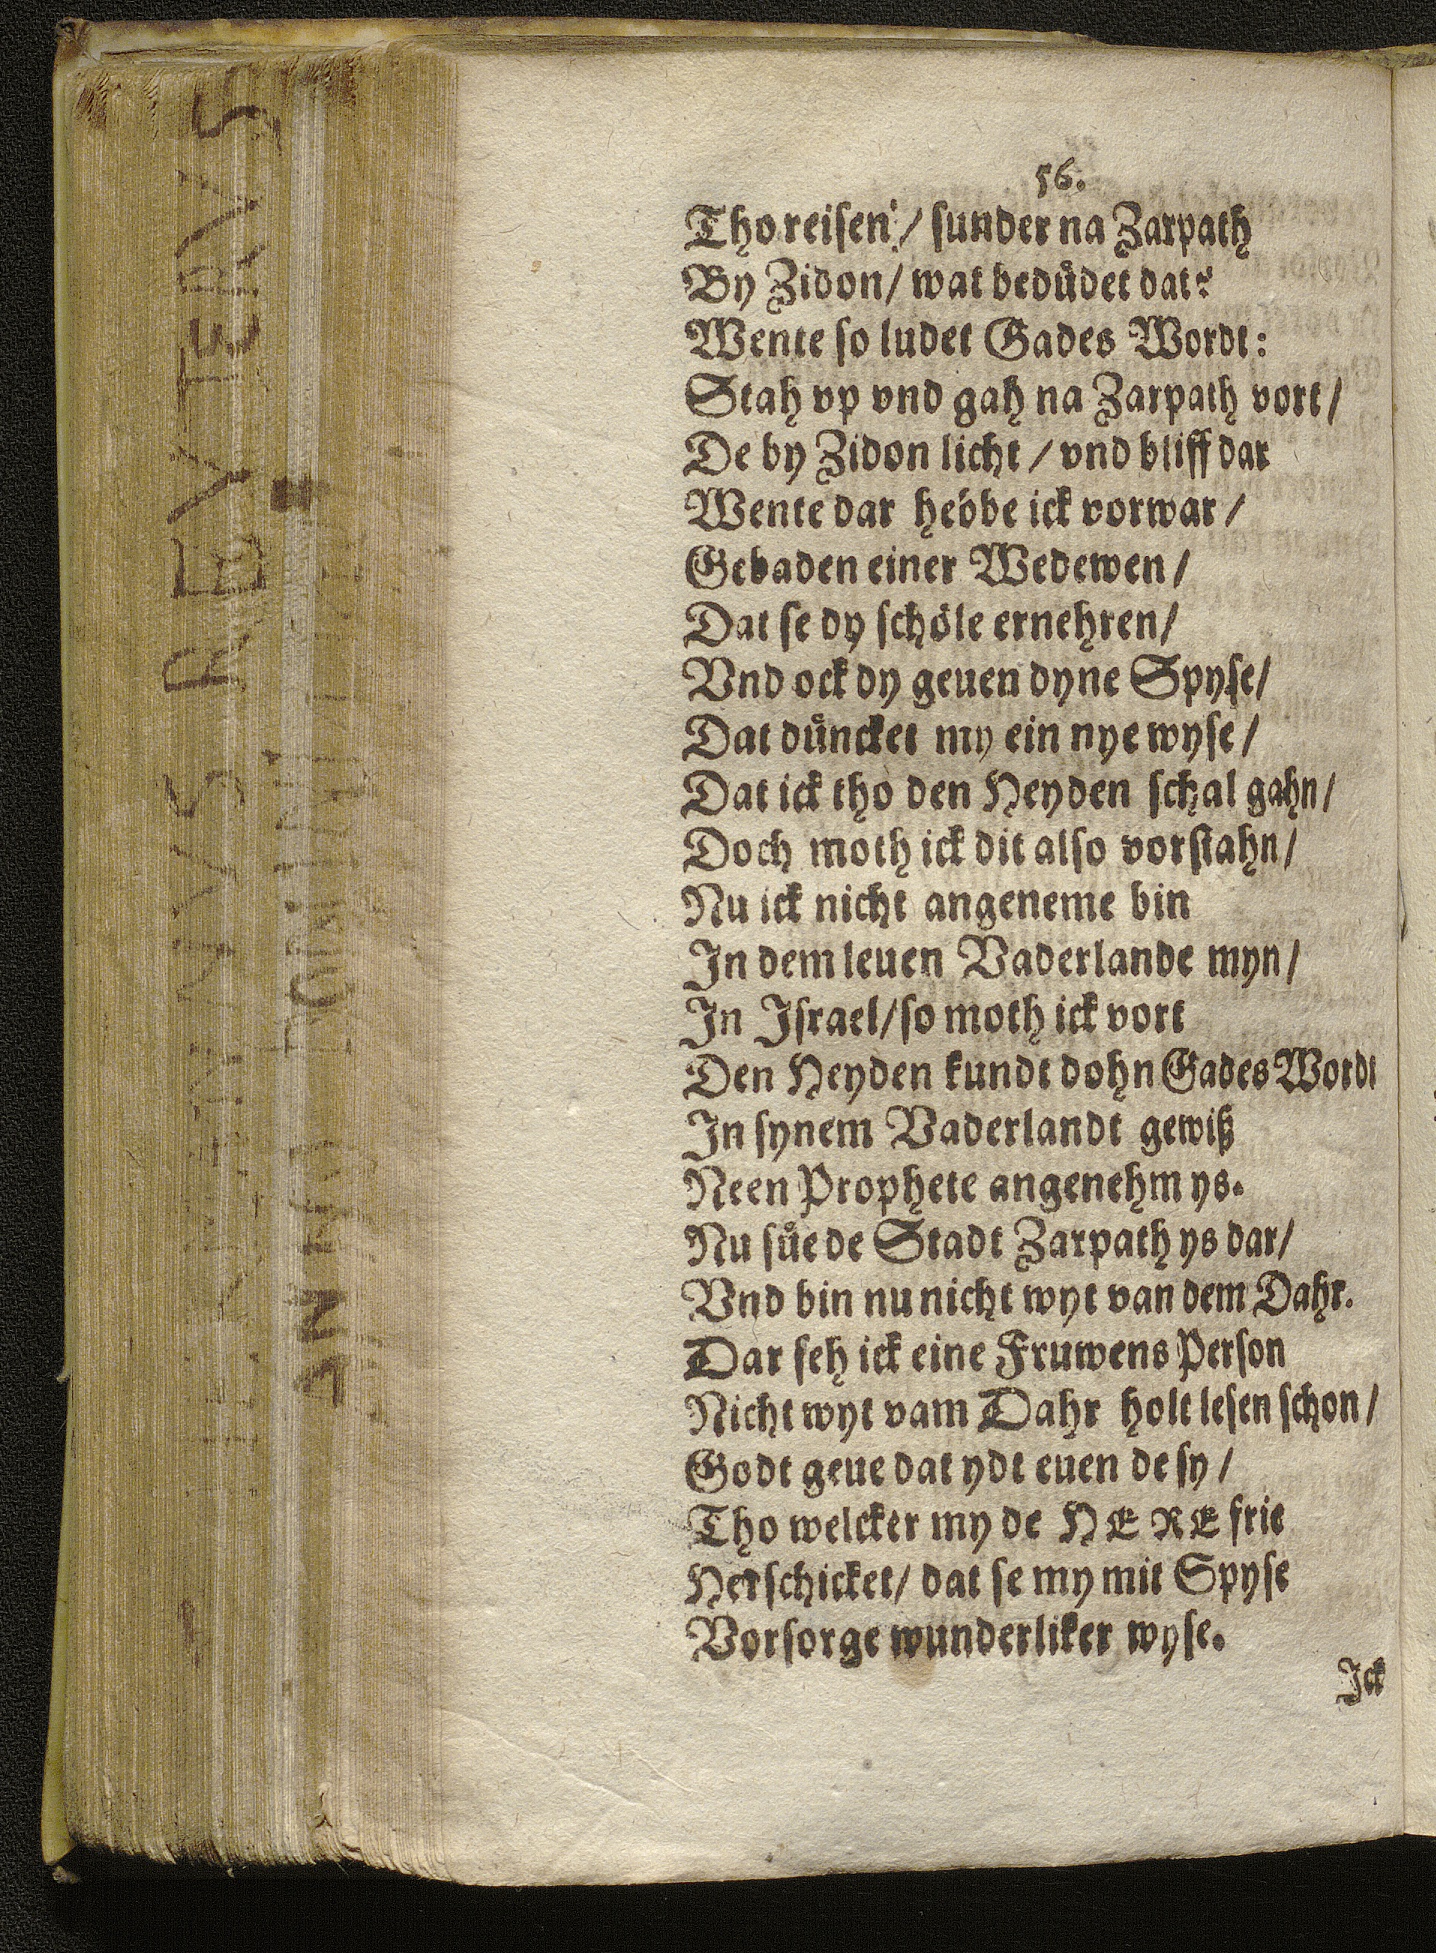 56.
Tho reisen / sunder na Zarpath
By Zidon / wat bedüdet dat?
Wente so ludet Gades Wordt:
Stah vp vnd gah na Zarpath vort /
De by Zidon licht / vnd bliff dar
Wente dar hebbe ick vorwar /
Gebaden einer Wedewen /
Dat se dy schöle ernehren /
Vnd ock dy geuen dyne Spyse /
Dat düncket my ein nye wyse /
Dat ick tho den Heyden schal gahn /
Doch moth ick dit also vorstahn /
Nu ick nicht angeneme bin
In dem leuen Vaderlande myn /
In Israel / so moth ick vort
Den Heyden kundt dohn Gades Wordt
In synem Vaderlandt gewiß
Neen Prophete angenehm ys.
Nu süe de Stadt Zarpath ys dar /
Vnd bin nu nicht wyt van dem Dahr.
Dar seh ick eine Fruwens Person
Nicht wyt vam Dahr holt lesen schon /
Godt geue dat ydt euen de sy /
Tho welcker my de HERE frie
Herschicket / dat se my mit Spyse
Vorsorge wunderliker wyse.
Ick
REVTERVS